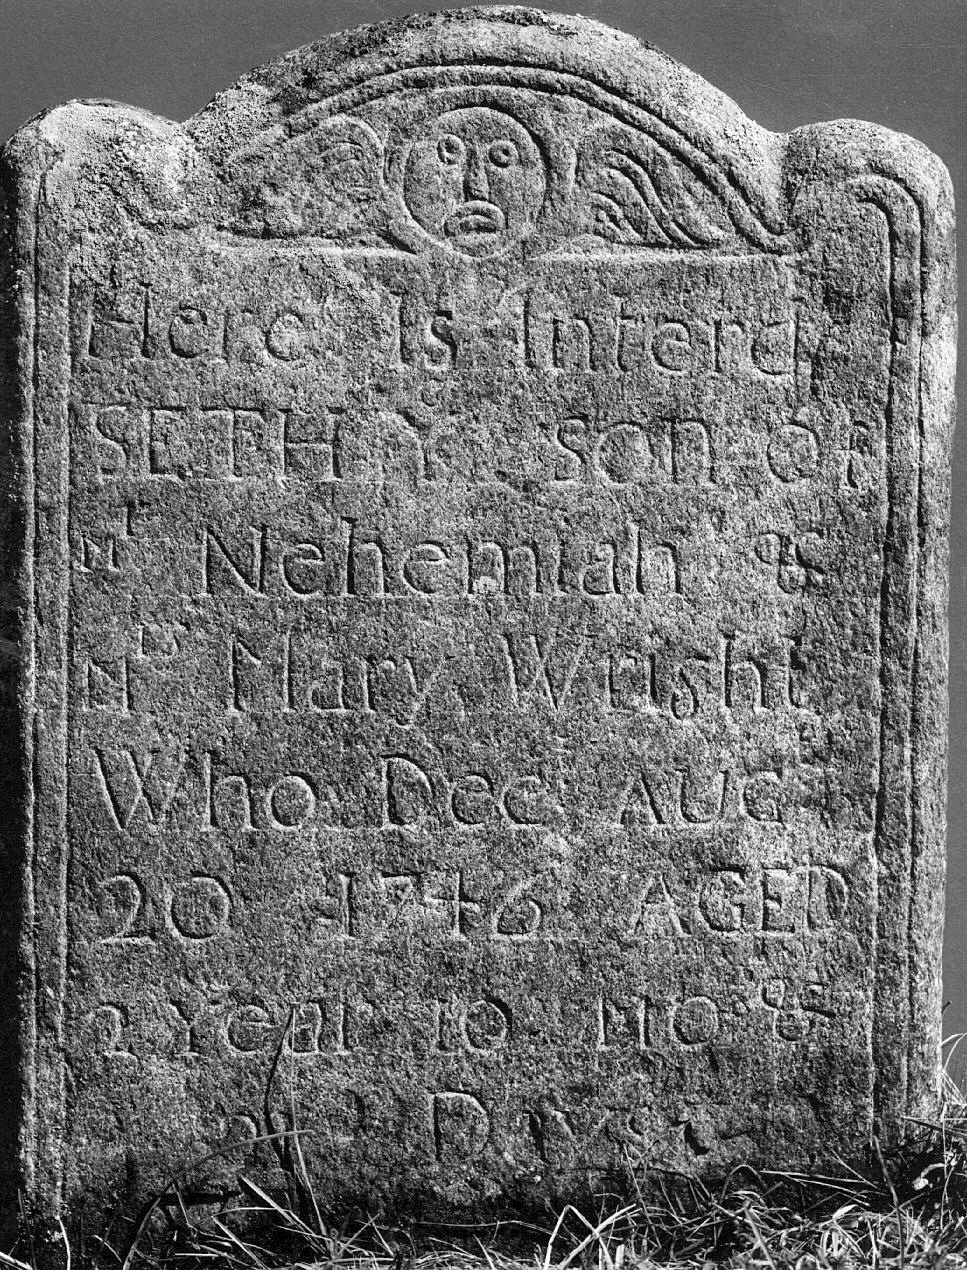 Here Is Interd
SETH Yᵉ son of
Mʳ Nehemiah &
Mʳˢ Mary Wright
Who Decᵈ AUG
20 1746 AGED
2 Year 10 Mo &
Days